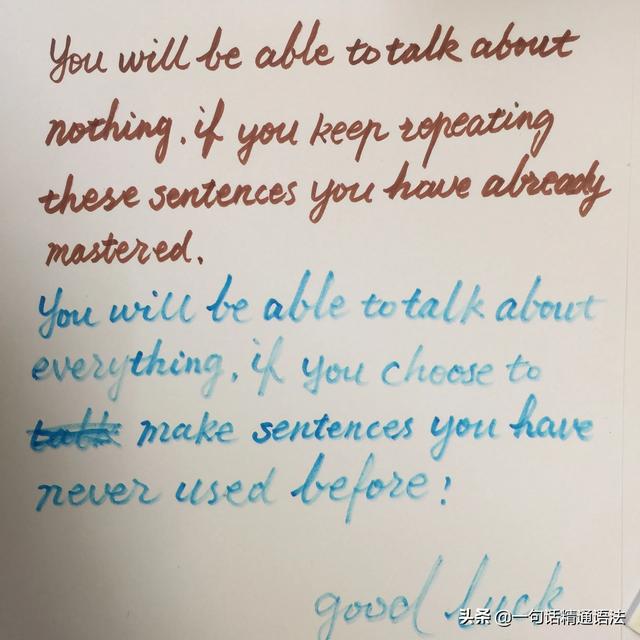 You will be able to talk about
nothing, if you keep repeating
these sentences you have already
mastered.
You will be able to talk about
everything, if you choose to
talk make sentences you have
never used before!
good luck
头条 @一句话精通语法